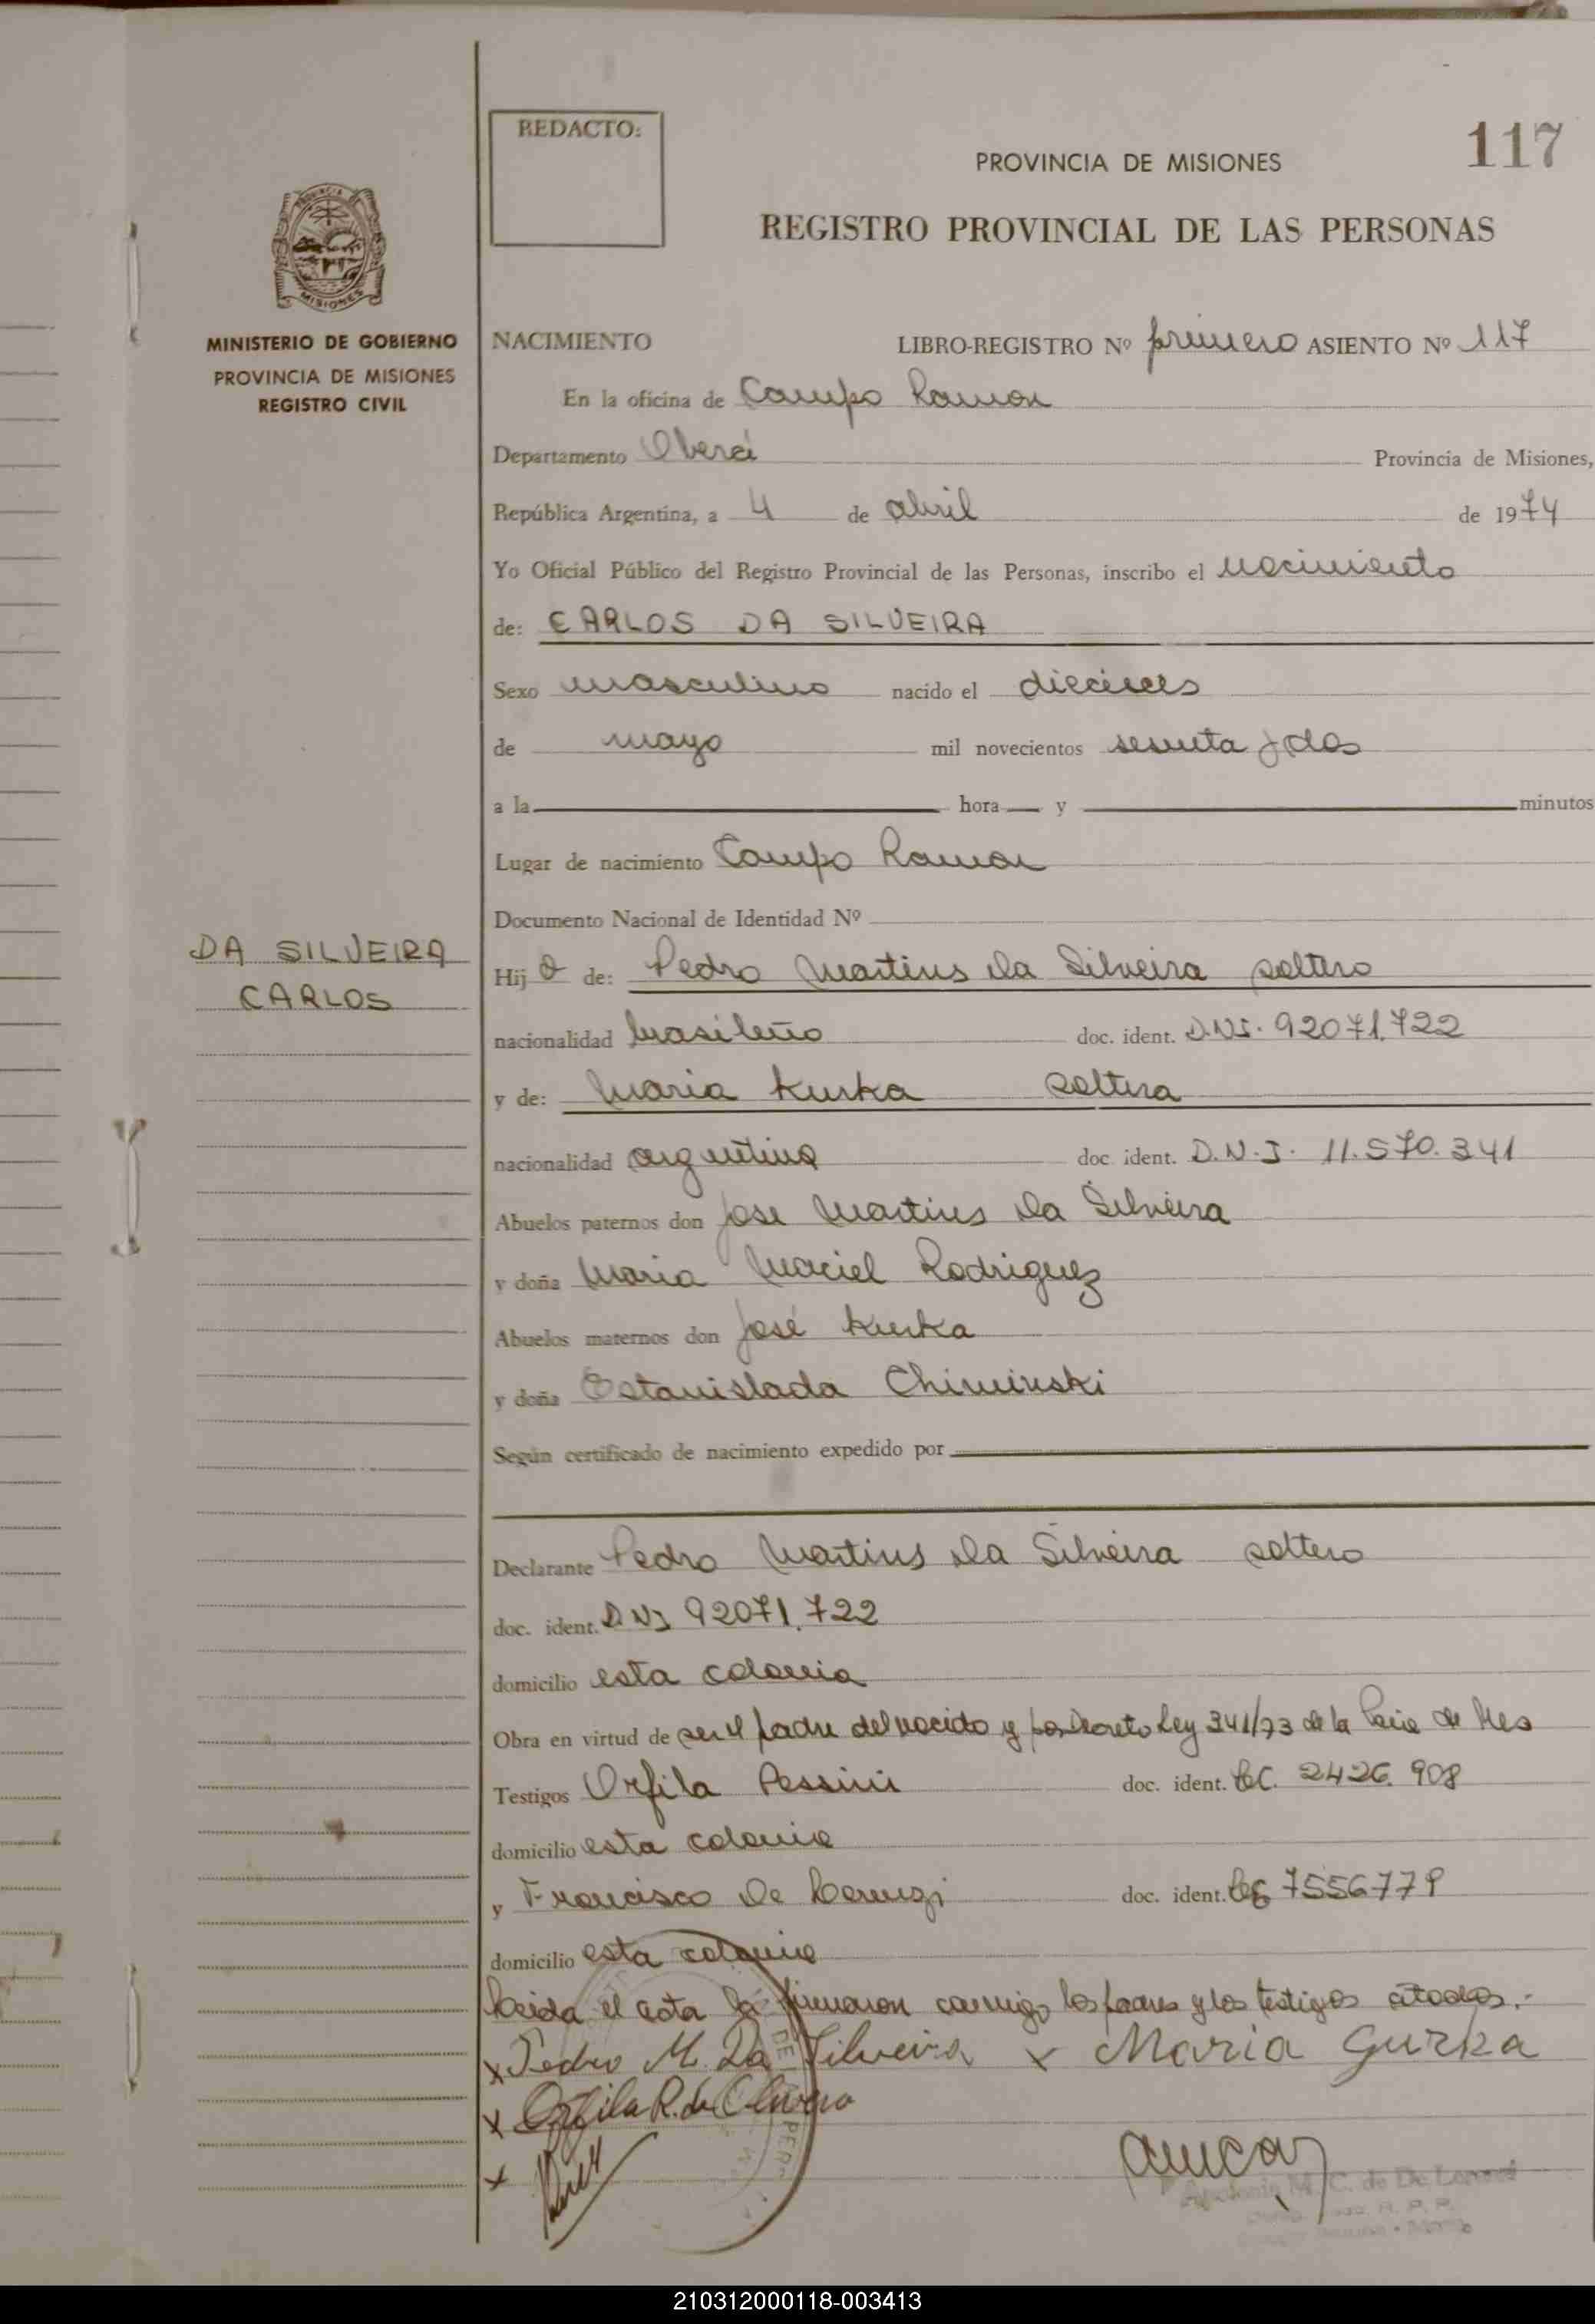 REDACTO:
117
PROVINCIA DE MISIONES
REGISTRO PROVINCIAL DE LAS PERSONAS
MISIONES
MINISTERIO DE GOBIERNO
PROVINCIA DE MISIONES
REGISTRO CIVIL
NACIMIENTO LIBRO-REGISTRO Nº primero ASIENTO Nº 117
En la oficina de Campo Ramon
Departamento Oberá Provincia de Misiones,
República Argentina, a 4 de abril de 1974
Yo Oficial Público del Registro Provincial de las Personas, inscribo el nacimiento
de: CARLOS DA SILVEIRA
Sexo masculino nacido el
de mayo mil novecientos y dos
a la hora y minutos
Lugar de nacimiento Campo Ramon
Documento Nacional de Identidad Nº
DA SILVEIRA
CARLOS
Hij o de: Pedro Martins Da Silveira soltero
nacionalidad brasileño doc. ident. D.N.I. 92071.722
y de: Maria Kurka soltera
nacionalidad argentina doc. ident. D.N.I. 11.570.341
Abuelos paternos don Jose Martins Da Silveira
y doña Maria Maciel Rodriguez
Abuelos maternos don José Kurka
y doña Estanislada Chiminski
Según certificado de nacimiento expedido por
Declarante Pedro Martins Da Silveira soltero
doc. ident. D.N.I 92071.722
domicilio esta colonia
Obra en virtud de ser el padre del nacido y por Decreto Ley 341/73 de la
Testigos Orfila Pessini doc. ident. LC. 2426.908
domicilio esta colonia
y Francisco De doc. ident. 7556779
domicilio esta colonia
Leida el acta la firmaron conmigo los padres y los testigos citados.-
x Pedro M. Da Silveira x Maria Gurka
x Orfila R. de Olivera
x
M. C. de De
210312000118-003413